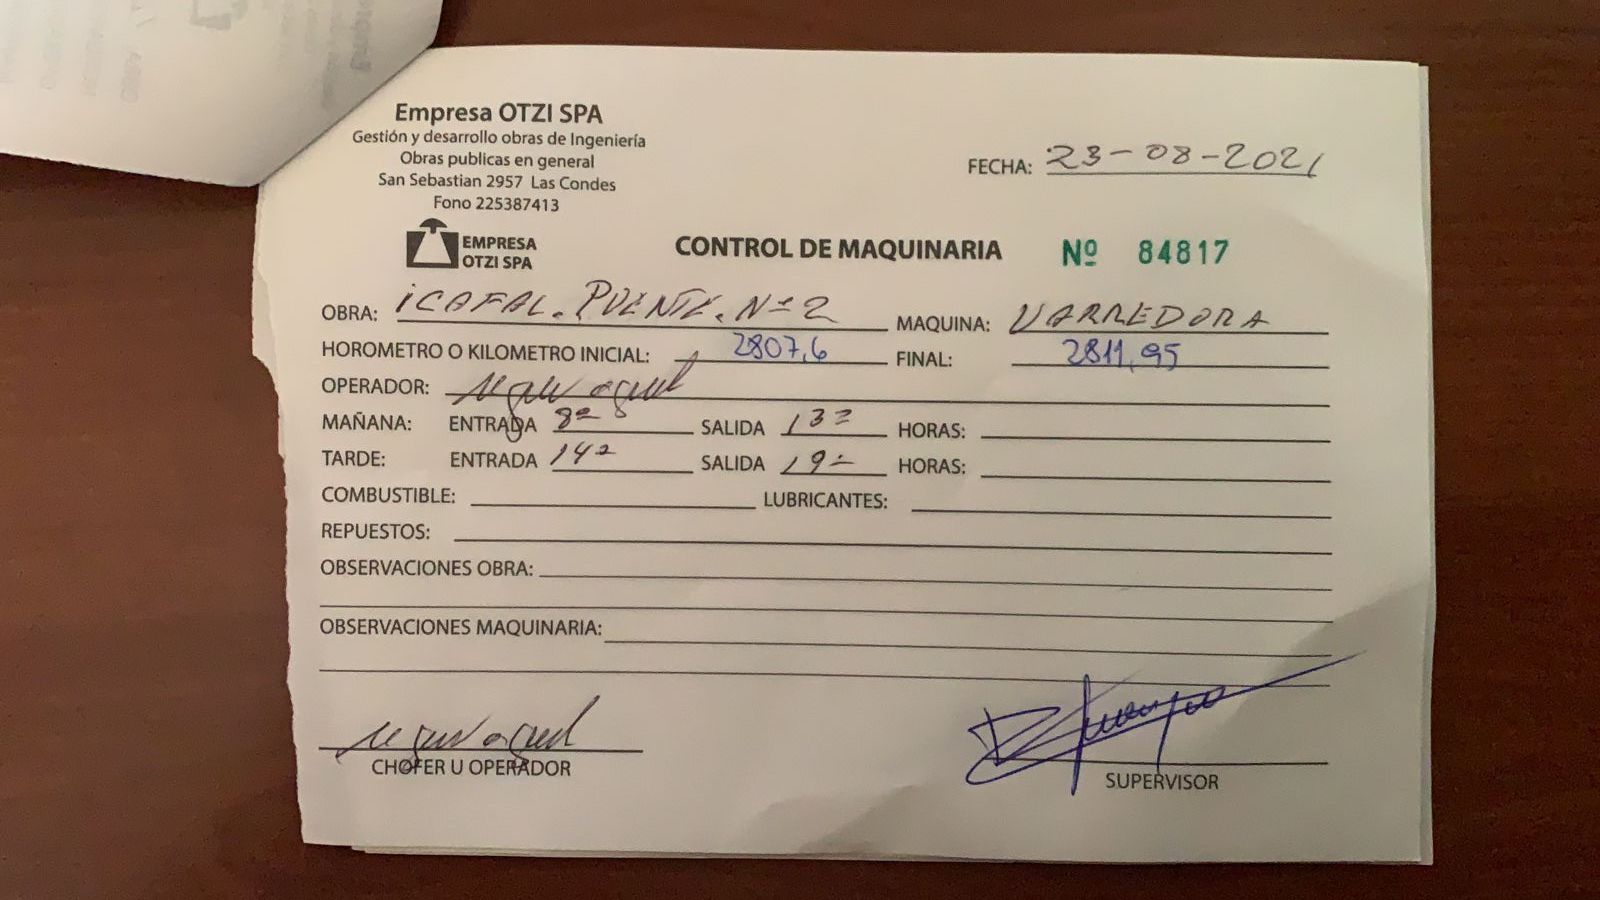 Empresa OTZI SPA
Gestión y desarrollo obras de Ingeniería
Obras publicas en general
San Sebastian 2957 Las Condes
Fono 225387413
FECHA: 23-08-2021
EMPRESA
OTZI SPA
CONTROL DE MAQUINARIA Nº 84817
OBRA: ICAFAL. PUENTE. Nº 2 MAQUINA: VARREDORA
HOROMETRO O KILOMETRO INICIAL: 2807,6 FINAL: 2811,95
OPERADOR:
MAÑANA: ENTRADA 8 SALIDA 13 HORAS:
TARDE: ENTRADA 14 SALIDA 19 HORAS:
COMBUSTIBLE: LUBRICANTES:
REPUESTOS:
OBSERVACIONES OBRA:
OBSERVACIONES MAQUINARIA:
CHOFER U OPERADOR
SUPERVISOR